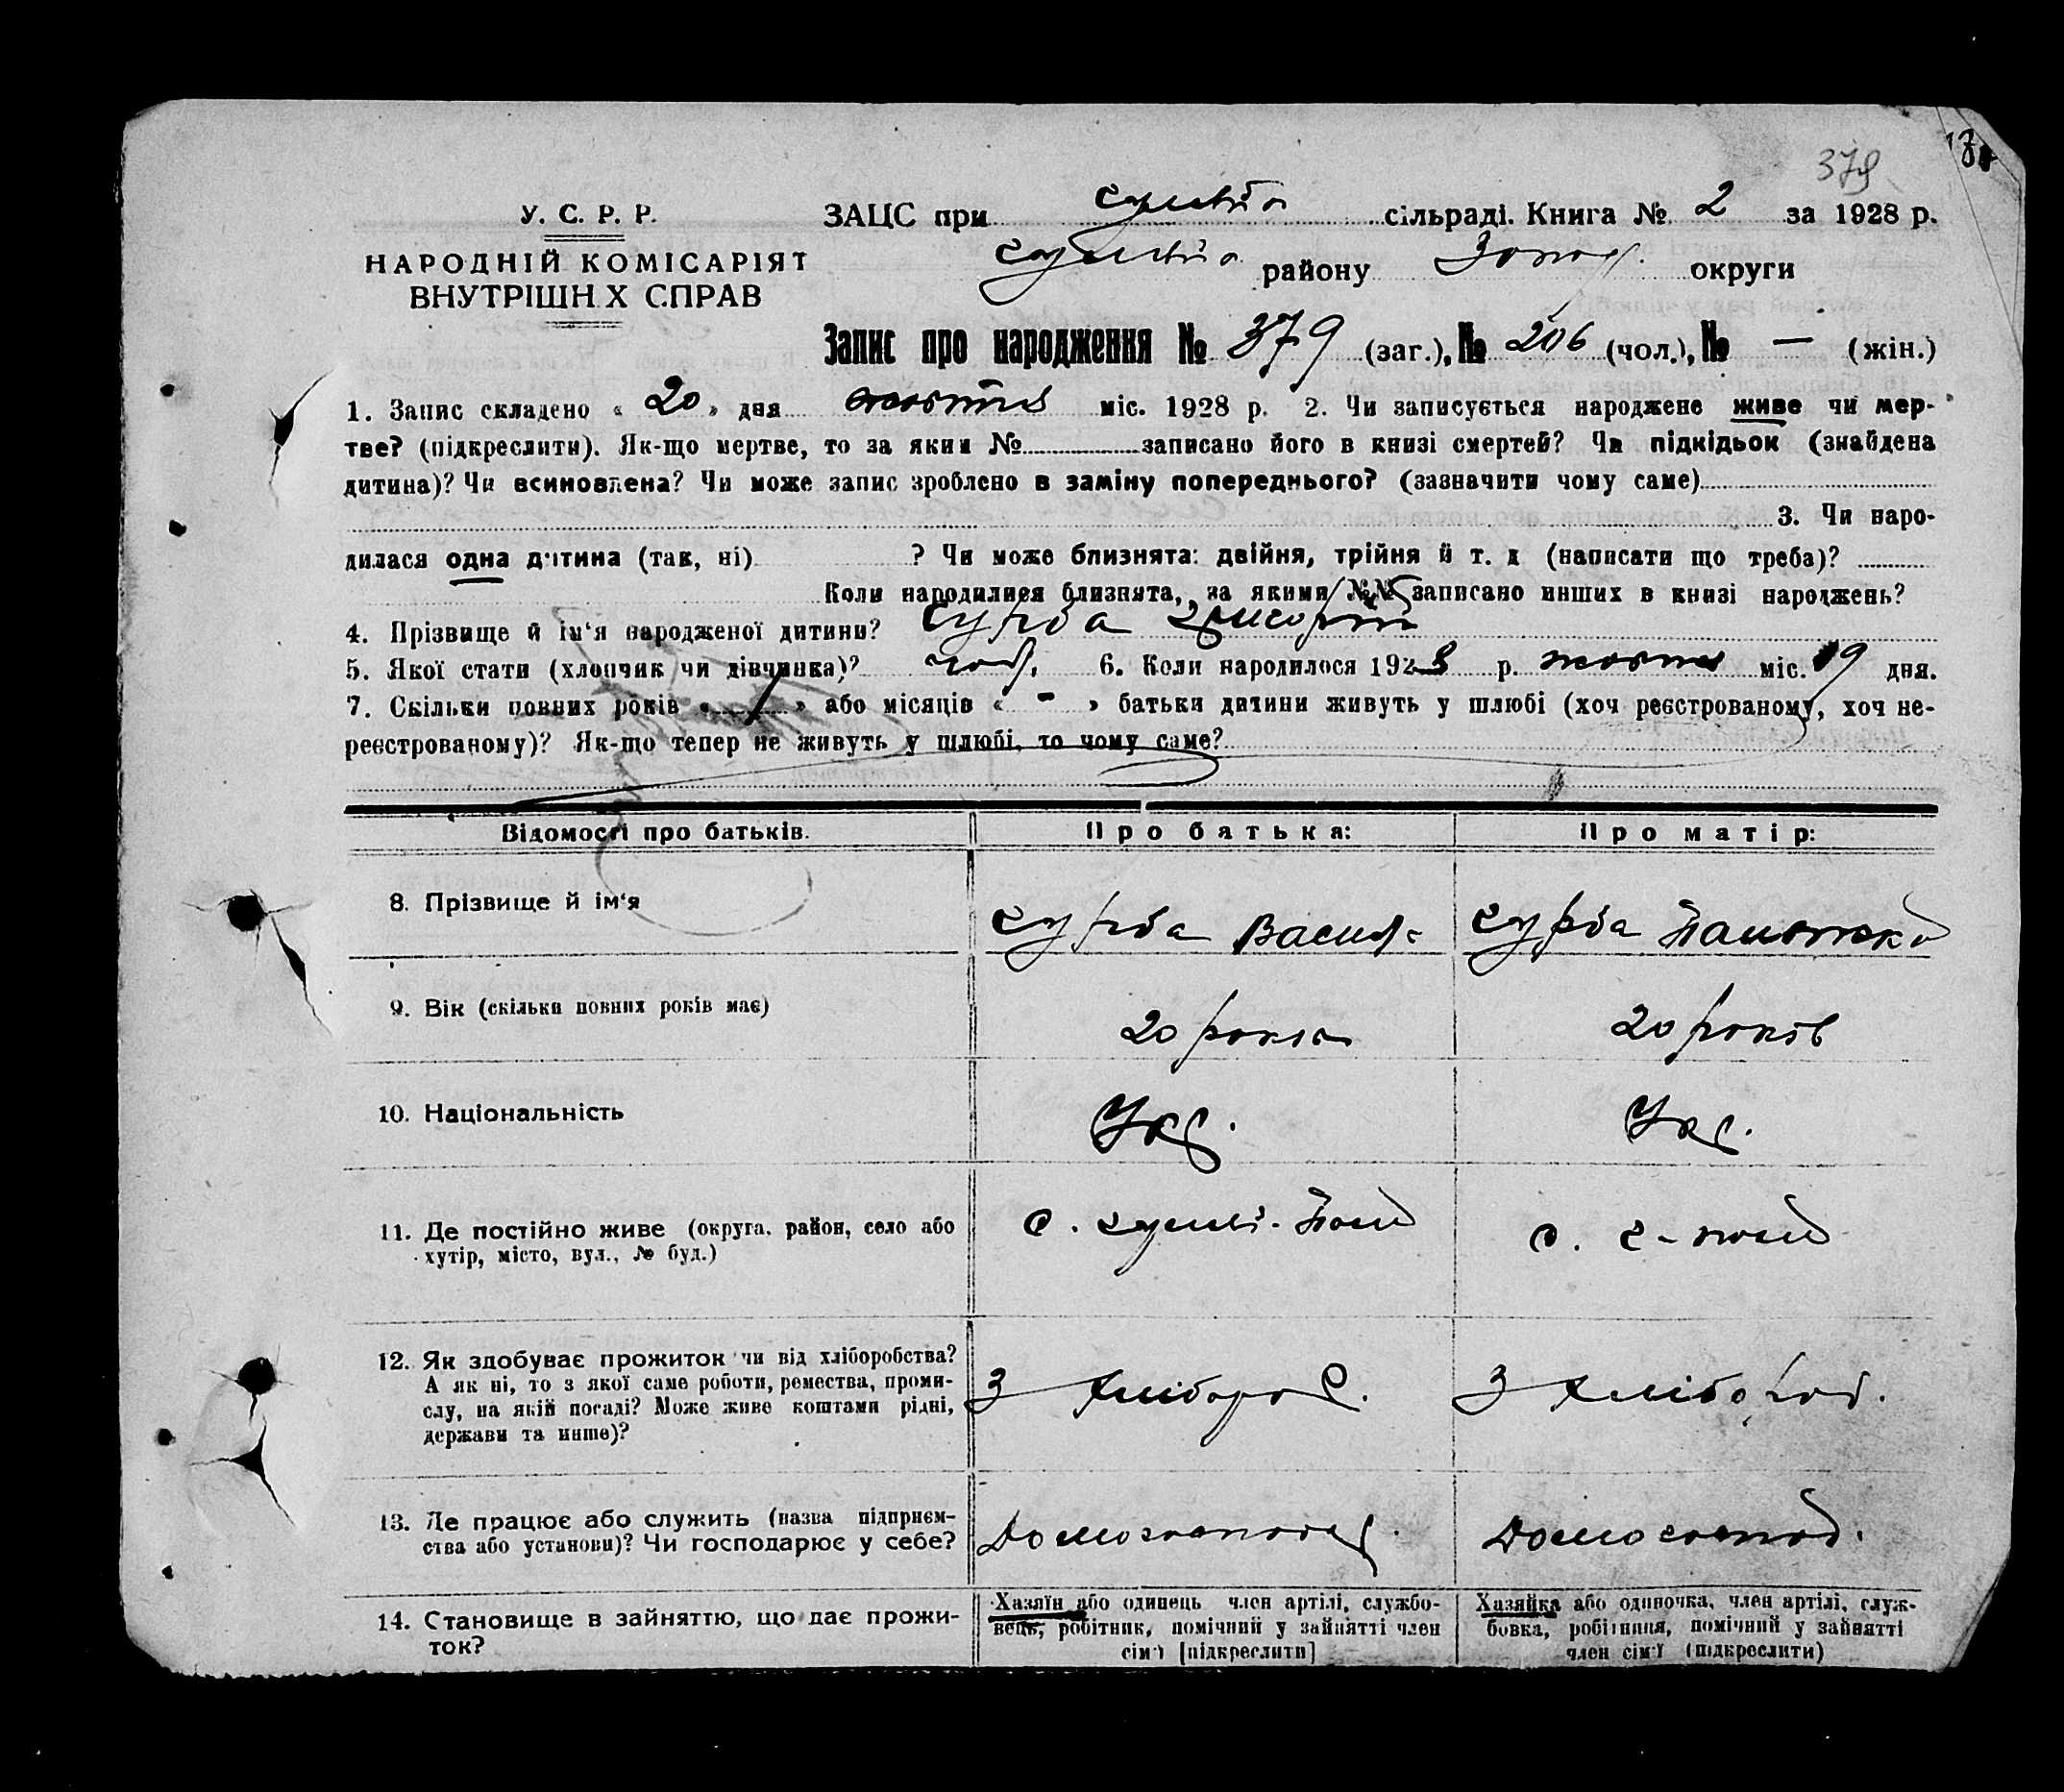 379
У. С. Р. Р.
ЗАЦС при сільраді. Книга № 2 за 1928 р.
НАРОДНІЙ КОМІСАРІЯТ
району Запор. округи
ВНУТРІШН Х СПРАВ
Запис про народження № 379 (заг.), № 206 (чол.), № — (жін.)
1. Запис складено « 20 » дня жовтня міс. 1928 р. 2. Чи записується народжене живе чи мер-
тве? (підкреслити). Як-що мертве, то за яким № записано його в книзі смертей? Чи підкідьок (знайдена
дитина)? Чи всиновлена? Чи може запис зроблено в заміну попереднього? (зазначити чому саме)
3. Чи наро-
дилася одна дитина (так, ні) ? Чи може близнята: двійня, трійня й т. д (написати що треба)?
Коли народилися близнята, за якими №№ записано инших в книзі народжень?
4. Прізвище й ім'я народженої дитини? Гурба Григорій
5. Якої стати (хлопчик чи дівчинка)? чол. 6. Коли народилося 1928 р. жовтня міс. 19 дня.
7. Скільки повних років « 1 » або місяців « - » батьки дитини живуть у шлюбі (хоч реєстрованому, хоч не-
реєстрованому)? Як-що тепер не живуть у шлюбі, то чому саме?
Відомості про батьків. Про батька: Про матір:
8. Прізвище й ім'я Гурба Василь Гурба
9. Вік (скільки повних років має) 20 років 20 років
10. Національність Укр. Укр.
11. Де постійно живе (округа, район, село або
хутір, місто, вул., № буд.) с. Гуляй-Поле с. Г-поле
12. Як здобуває прожиток чи від хліборобства?
А як ні, то з якої саме роботи, ремества, проми-
слу, на якій посаді? Може живе коштами рідні,
держави та инше)? З хлібороб. З хлібороб.
13. Де працює або служить (назва підприєм-
ства або установи)? Чи господарює у себе? Домогоспод. Домогоспод.
14. Становище в зайняттю, що дає прожи-
ток?
Хазяїн або одинець член артілі, службо-
вець, робітник, помічний у зайнятті член
сім'ї [підкреслити]
Хазяйка або одиночка, член артілі, служ-
бовка, робітниця, помічний у зайнятті
член сім'ї (підкреслити)